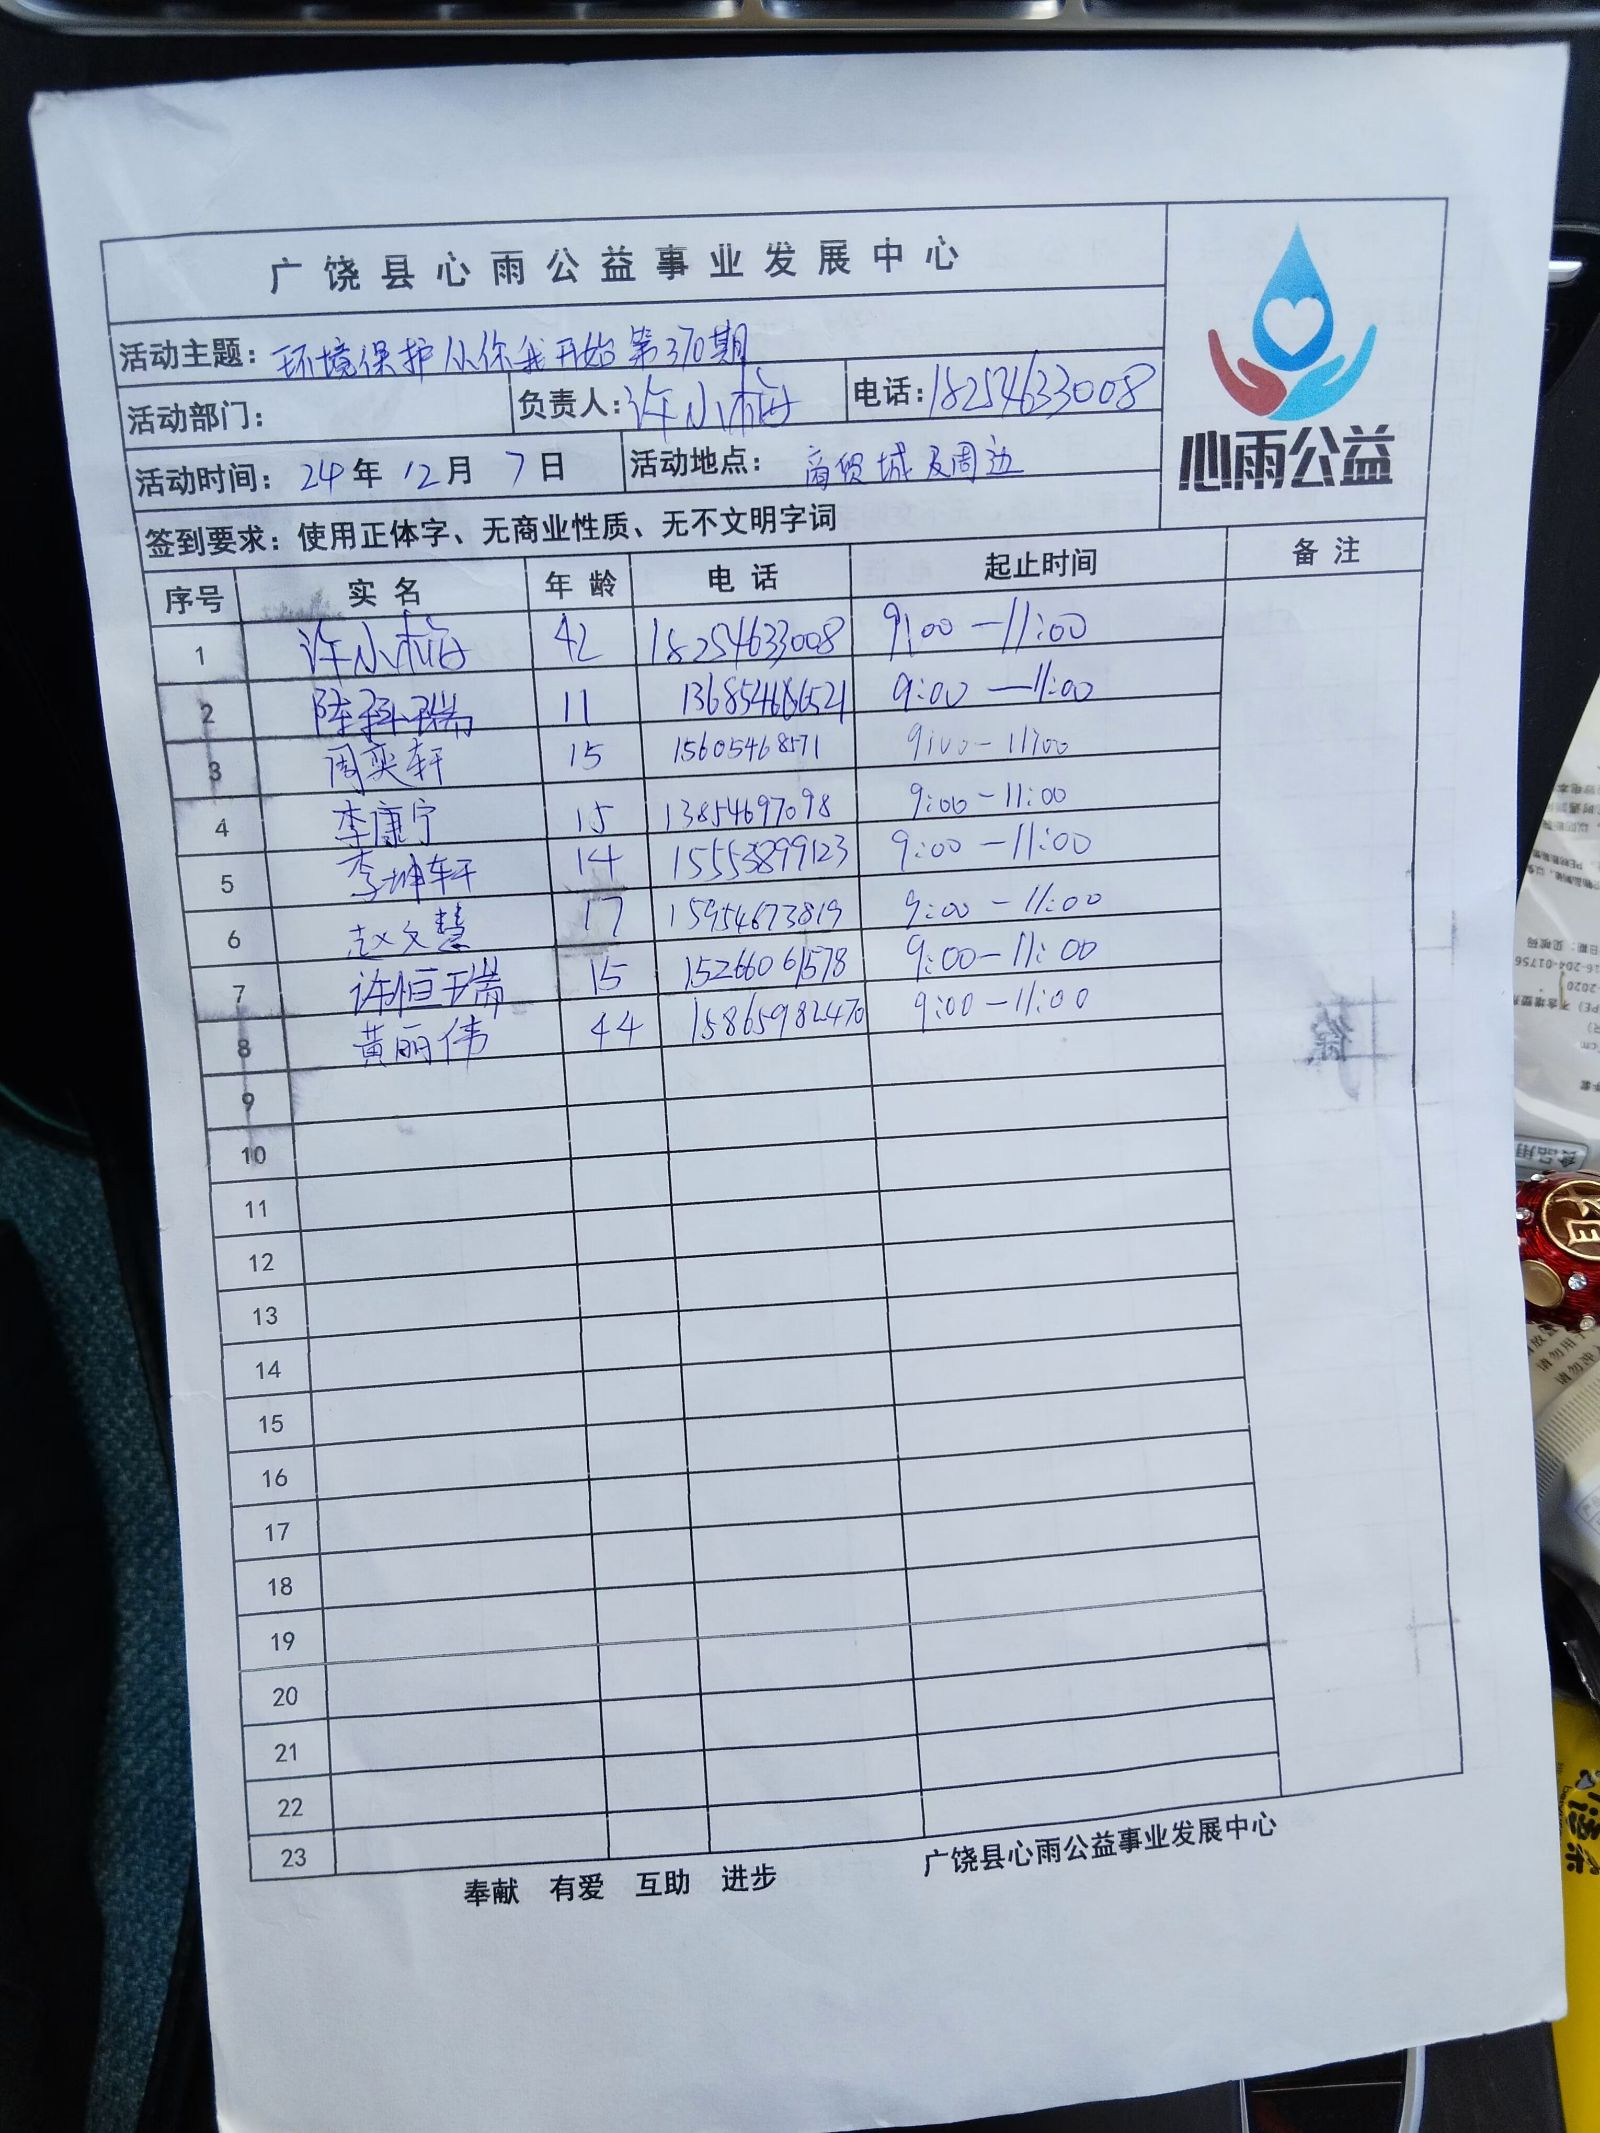 广饶县心雨公益事业发展中心
活动主题：环境保护从你我开始第370期
活动部门： 负责人：许小梅 电话：18254633008
心雨公益
活动时间：24年12月7日 活动地点：商贸城及周边
签到要求：使用正体字、无商业性质、无不文明字词
序号 实名 年龄 电话 起止时间 备注
1 许小梅 42 18254633008 9:00-11:00
2 11 9:00-11:00
3 周奕轩 15 15605468571 9:00-11:00
4 李康宁 15 13854697098 9:00-11:00
5 李坤轩 14 15553899123 9:00-11:00
6 赵文慧 17 15954673819 9:00-11:00
7 许恒瑞 15 15266061578 9:00-11:00
8 黄丽伟 44 15865982470 9:00-11:00
9
10
11
12
13
14
15
16
17
18
19
20
21
22
23
奉献 有爱 互助 进步 广饶县心雨公益事业发展中心